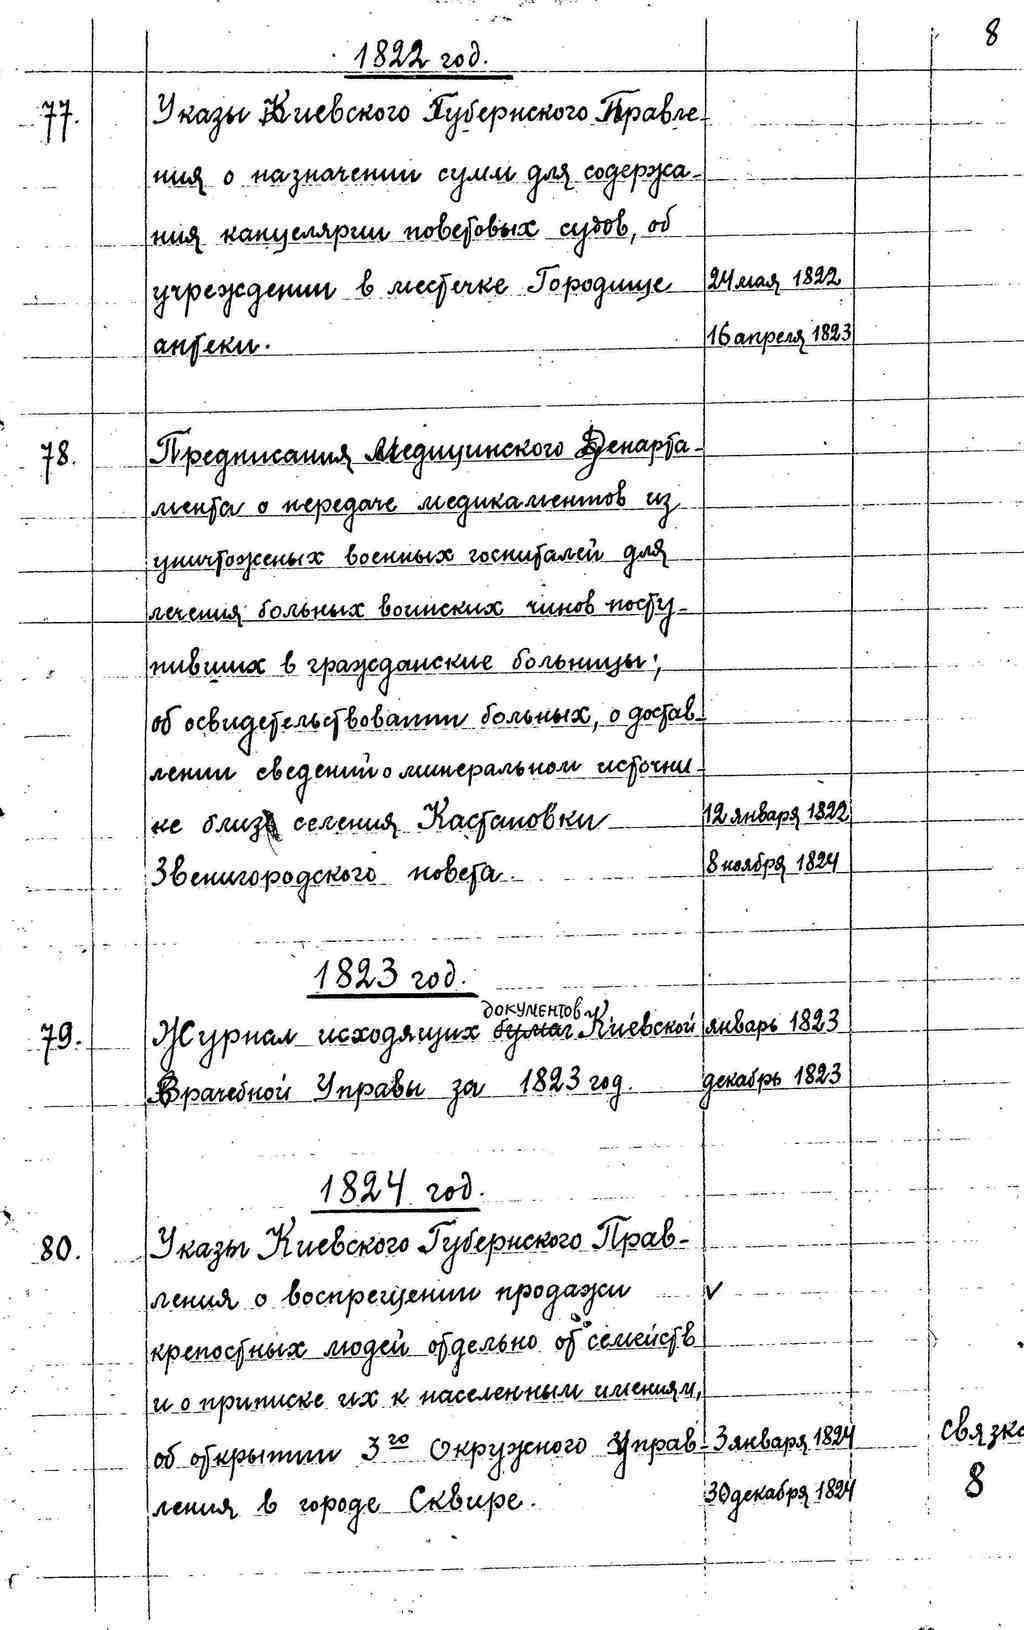 8
1822 год.
77. Указы Киевского Губернского Правле-
ния о назначении сумм для содержа-
ния канцелярии поветовых судов, об
учреждении в местечке Городище 24 мая 1822
аптеки. 16 апреля 1823
78. Предписания Медицинского Департа-
мента о передаче медикаментов из
уничтоженых военных госпиталей для
лечения больных воинских чинов посту-
пивших в гражданские больницы;
об освидетельствовании больных, о достав-
лении сведений о минеральном источни-
ке близ селения Кастановки 12 января 1822
Звенигородского повета. 8 ноября 1824
1823 год.
документов
79. Журнал исходящих бумаг Киевской январь 1823
Врачебной Управы за 1823 год. декабрь 1823
1824 год.
80. Указы Киевского Губернского Прав-
ления о воспрещении продажи ✓
крепостных людей отдельно от семейств
и о приписке их к населенным имениям,
об открытии 3го Окружного Управ- 3 января 1824 связка
ления в городе Сквире. 30 декабря 1824 8